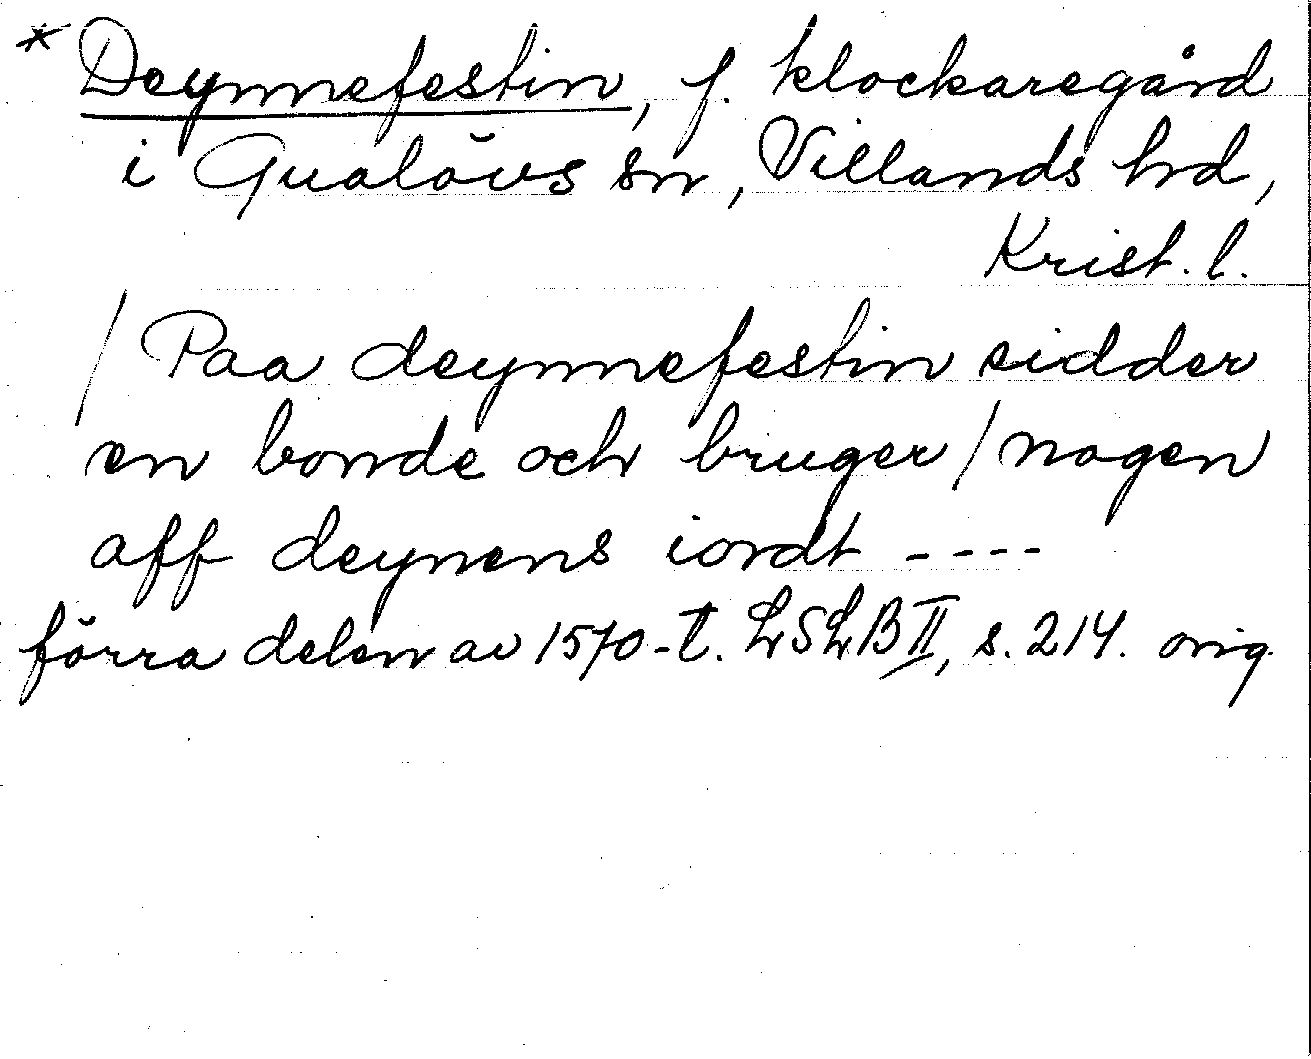 * Deynnefestin, f. klockaregård
i Gualövs sn, Villands hd,
Krist. l.
/ Paa deynnefestin sidder
en bonde och bruger / nogen
aff deynens iordt ----
förra delen av 1570-t. LSLB II, s. 214. orig.